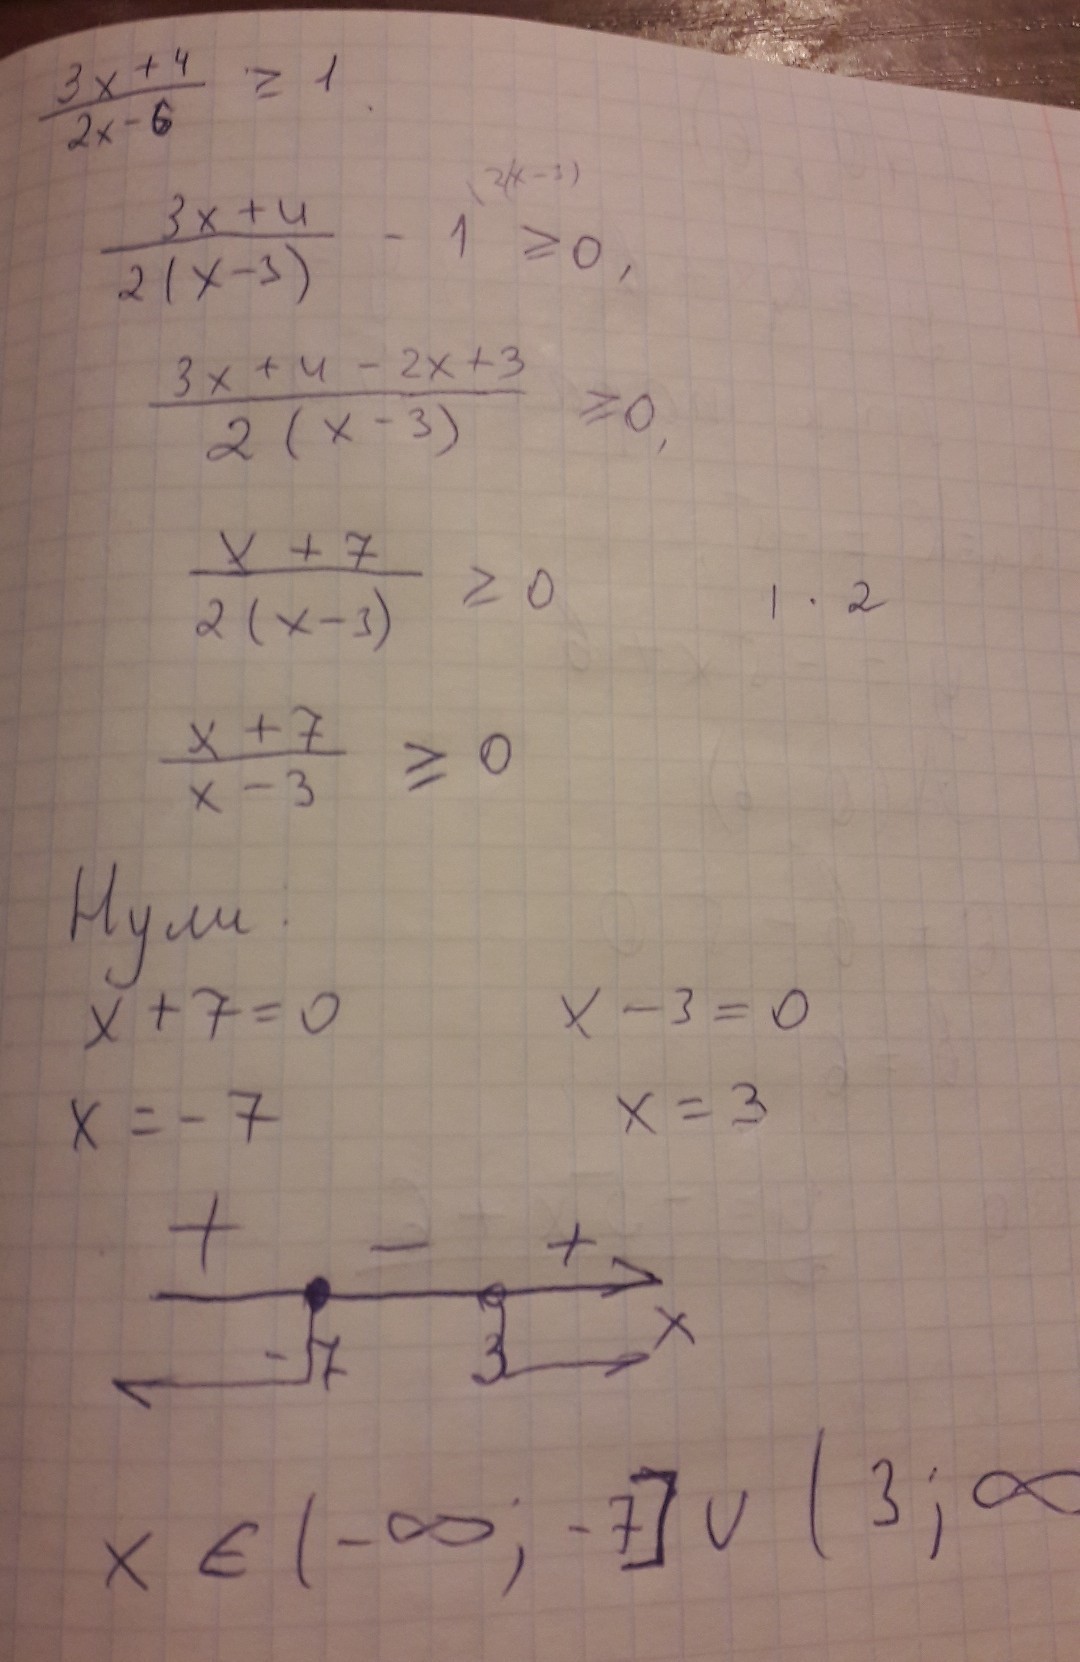 (3x+4)/(2x-6) ≥ 1.
(3x+4)/(2(x-3)) - 1 (2(x-3) ≥ 0,
(3x+4-2x+3)/(2(x-3)) ≥ 0,
(x+7)/(2(x-3)) ≥ 0 | · 2
(x+7)/(x-3) ≥ 0
Нули:
x+7=0 x-3=0
x=-7 x=3
+ - +
-7 3 x
x ∈ (-∞; -7] ∪ (3; ∞